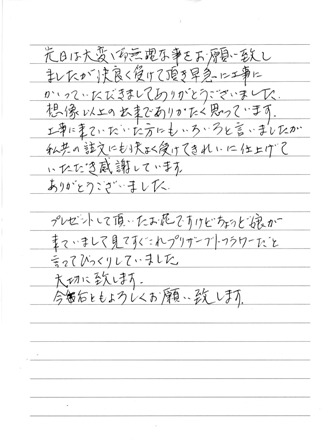 先日は大変ご無理な事をお願い致し
ましたが快良く受けて頂き早急に工事に
かかっていただきましてありがとうございました。
想像以上の出来でありがたく思っています。
工事に来ていだいた方にもいろいろと言いましたが
私共の注文にも快よく受けてきれいに仕上げて
いただき感謝しています。
ありがとうございました。

プレゼントして頂いたお花ですけどちょうど娘が
来ていまして見てすぐこれプリザーブトフラワーだと
言ってびっくりしていました。
大切に致します。
今后ともよろしくお願い致します。